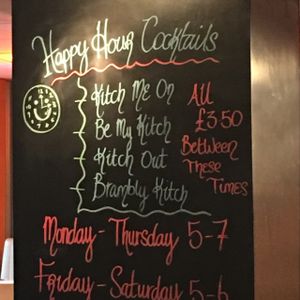 Happy Hour Cocktails
Kitch Me On
Be My Kitch
Kitch Out
Brambly Kitch
All
£3.50
Between
These
Times
Monday - Thursday 5-7
Friday - Saturday 5-6